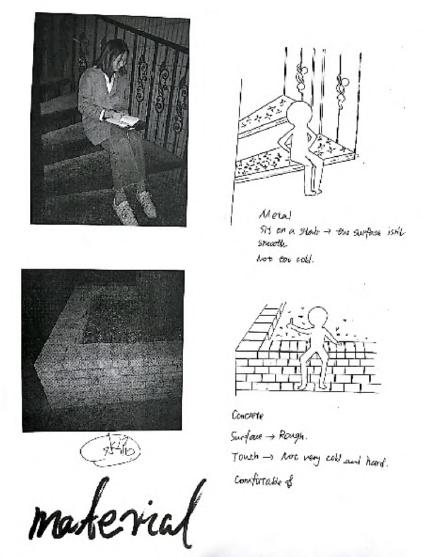 Metal
Sit on a stair → the surface isn't
smooth
Not too cold.
Concrete
Surface → Rough.
Touch → Not very cold and hard.
Comfortable
material